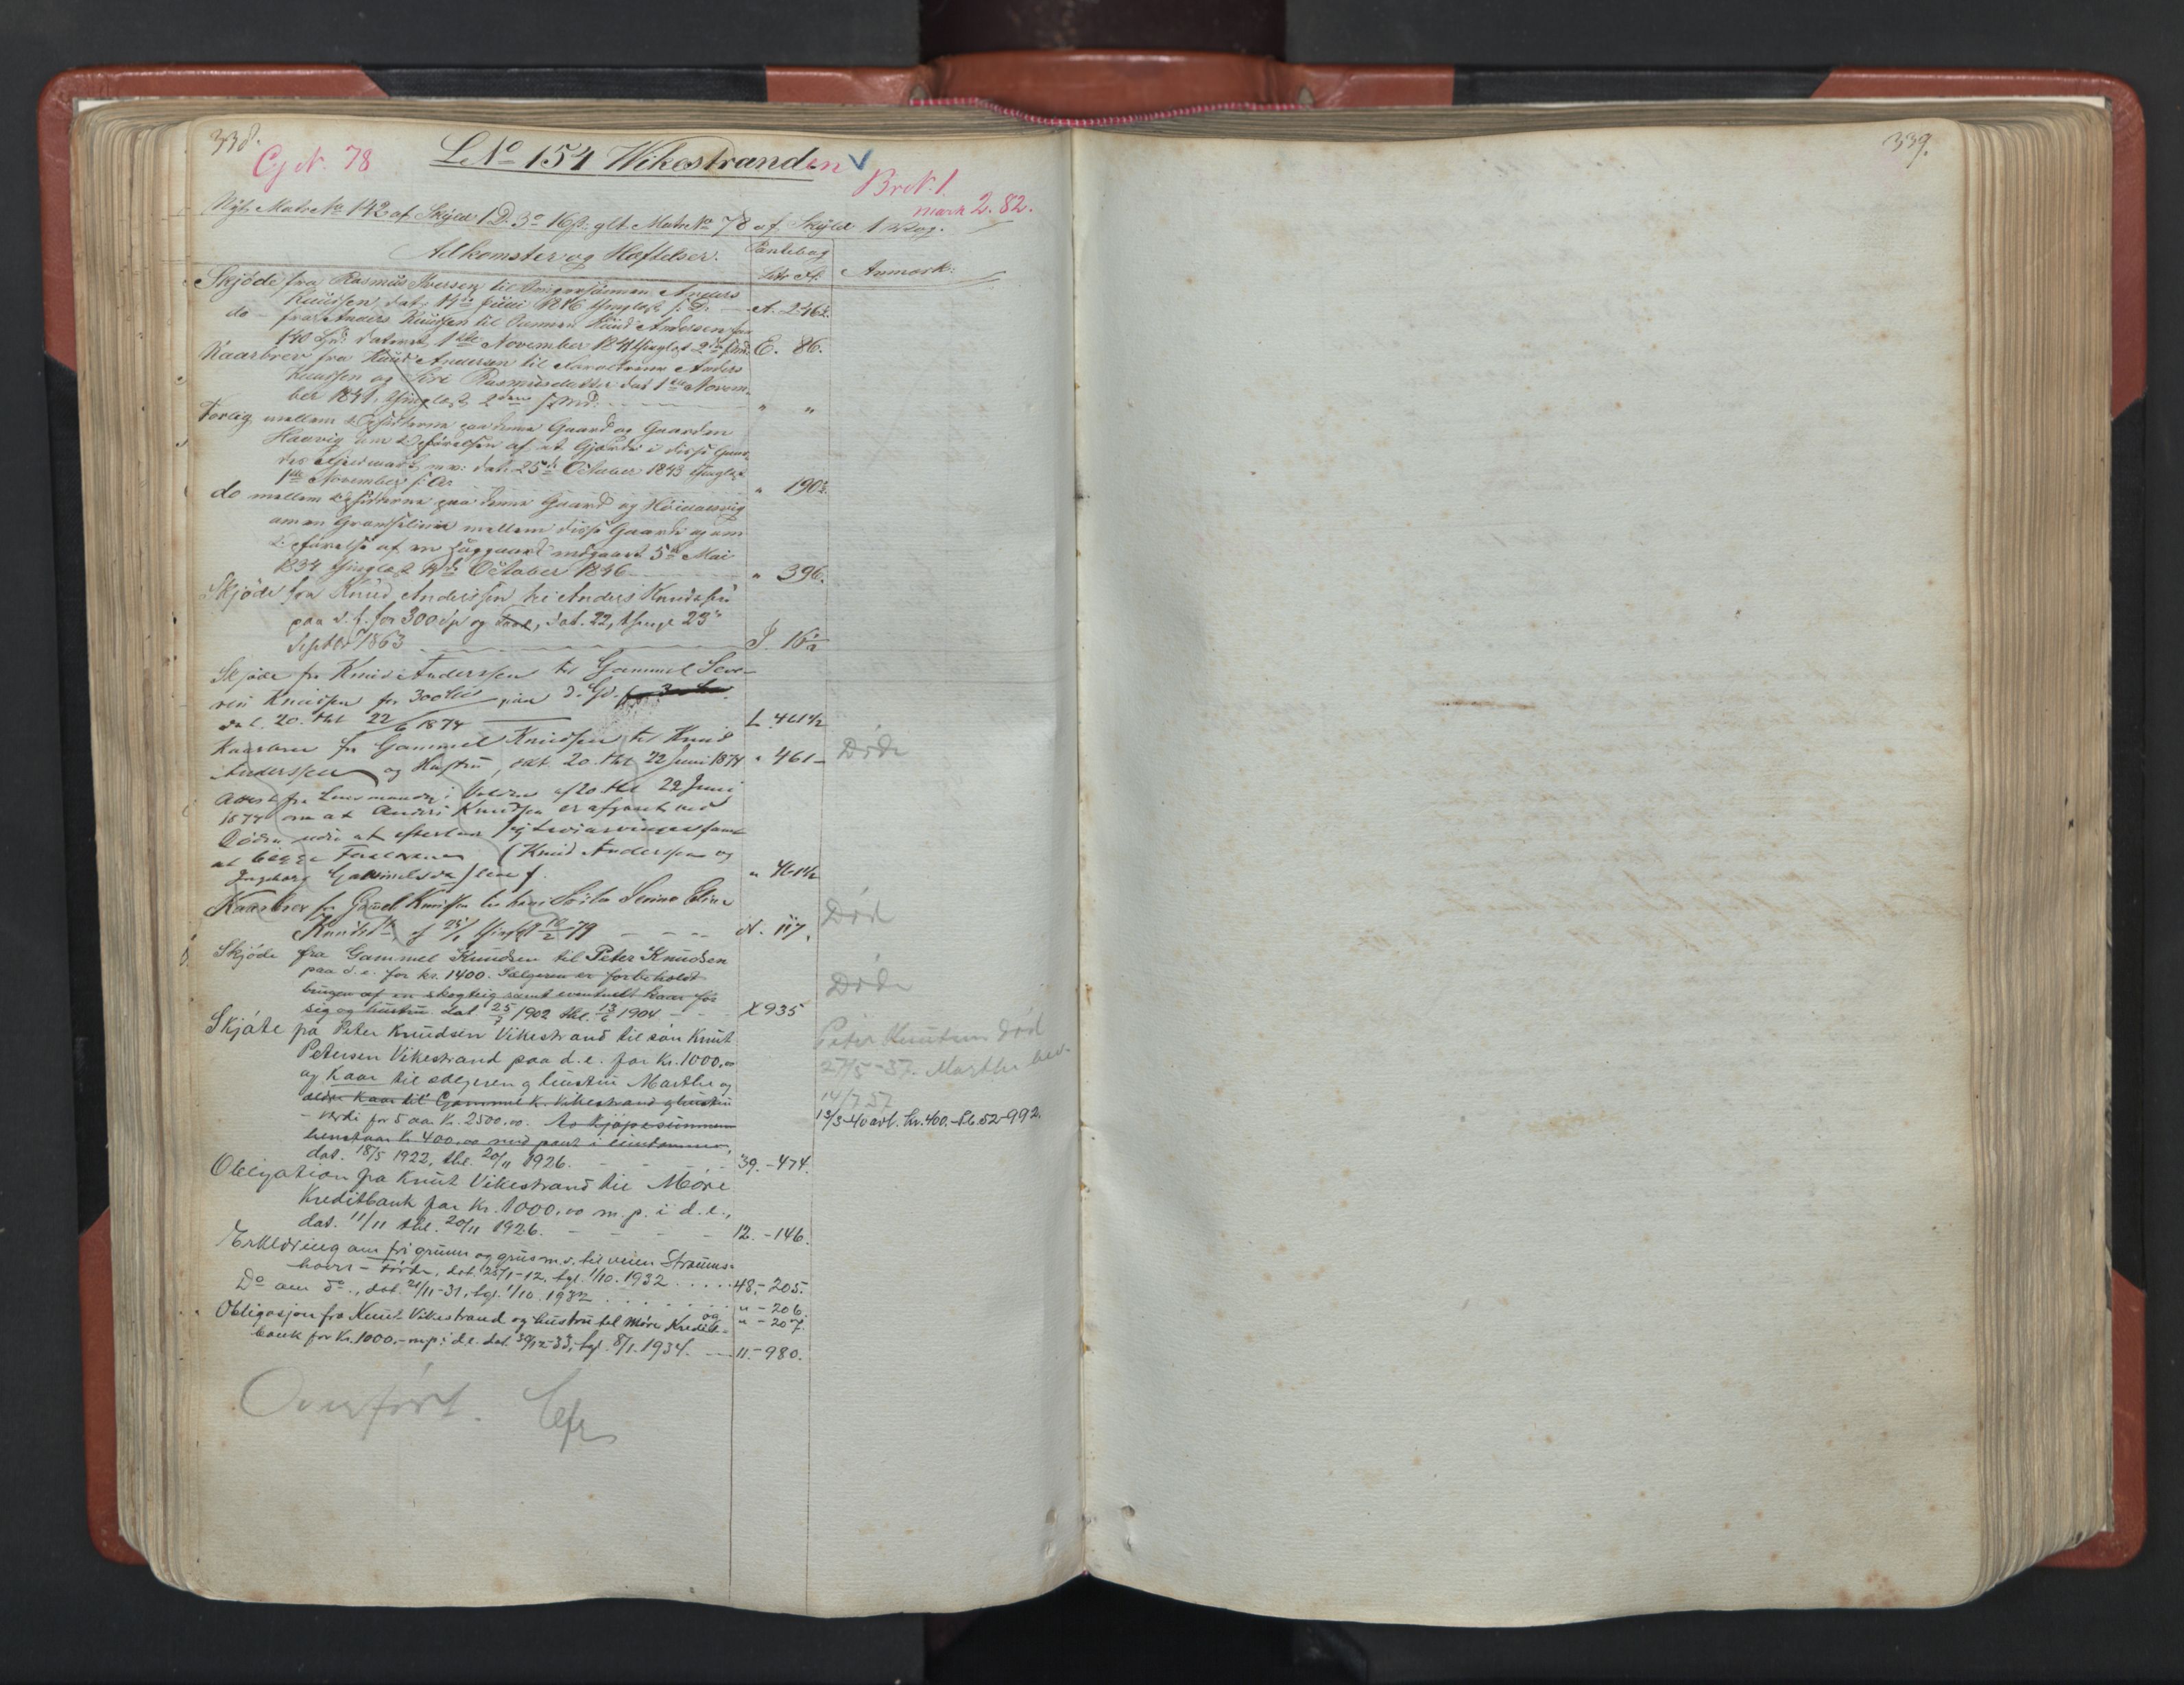 338.
339.
Gj. N. 78
LNo 154 Vikestranden V
Br.N. 1.
mark 2.82.
Nyt Matr No 142 af Skyld 1 D. 3 o 16 ß. glt. Matr No 78 af Skyld 1 Vog.
Adkomster og Hæftelser.
Pantebog
Litr. Fol.
Anmærk:
Skjöde fra Rasmus Iversen til Anders
Knudsen, dat. Juni 1816 thinglæst s. D. A. 246
do fra Anders Knudsen til Sønnen Knud Andersen for
140 Spd. dateret 1ste November 1841 thinglæst 2den E. 86.
Kaarbrev fra Knud Andersen til Forældrene Anders
Knudsen og Siri Rasmusdatter dat 1ste Novem-
ber 1841, thinglæst 2den s. Md. " "
Forlig mellem Opsidderne paa denne Gaard og Gaarden
Haavig om Opførelsen af et Gjærde i disse Gaar-
des m.v. dat. 25de October 1843 thinglæst
1ste November s. Aar " 190
do mellem Opsidderne paa denne Gaard og
om en Grændselinie mellem disse Gaarde og om
Opførelse af en indgaaet 5te Mai
1834 thinglæst October 1846 " 396.
Skjöde fra Knud Andersen til Anders Knudsen
paa d. E. for 300 Spd og Kaar, dat. 22, thingl 23de
Septbr 1863 I. 16
Skjøde fra Knud Anderssen til Gammel Seve-
rin Knudsen for 300 paa d. Gd.
dat. 20. thl 22/6 1874 L. 461½
Kaarbrev fra Gammel Knudsen til Knud
Anderssen og Hustru, dat. 20. thl 22 Juni 1874 " 461 Døde
Attest fra Lensmanden i Volden af 20 thl 22 Juni
1874 om at Anders Knudsen er afgaaet ved
Døden uden at efterlade sig Livsarvinger samt
at begge Forældrene (Knud Anderssen og
Ingeborg Gammelsda) lever. " 461½
Kaarbrev fra Gamel Knudsen til Serine Eline
Knudsd. af 25/1 thinglæst 10/2 79 N. 117. Død
Skjøde fra Gammel Knudsen til Peter Knudsen
paa d. e. for kr. 1400. Sælgeren er forbeholdt
brugen af en skogteig samt eventuelt kaar for Døde
sig og hustru. dat 25/7 1902 thl. 13/6 1904 X 935
Skjøte fra Peter Knudsen Vikestrand til søn Knut
Petersen Vikestrand paa d.e. for Kr. 1000,00
og kaar til sælgeren og hustru Marthe og
ældre kaar til Gammel K. Vikestrand og hustru
- værdi for 5 aar Kr. 2500,00. Av kjøpesummen
henstaar kr. 400,00 med pant i eiendommen,
dat. 18/5 1922, thl. 20/11 1926. 39. - 474.
Peter Knutsen død
27/5-37. Marthe
14/7 57
13/3-40 avl. kr. 400.- Pb. 52-992.
Obligation fra Knut Vikestrand til Møre
Kreditbank for Kr. 1000,00 m.p. i d.e.,
dat. 11/11 thl. 20/11 1926. 12. - 146.
Erklæring om fri grunn og grus m.v. til veien Straums-
havn - Førde, dat. 25/1-12, tgl. 1/10. 1932 48. - 205.
Do om do., dat. 21/11-31, tgl. 1/10. 1932 " - 206.
og " - 207.
Obligasjon fra Knut Vikestrand og hustru til Møre Kredit-
bank for Kr. 1000,- m.p. i d.e. dat. 30/12-33, tgl. 8/1. 1934. 11. - 980.
Overført.